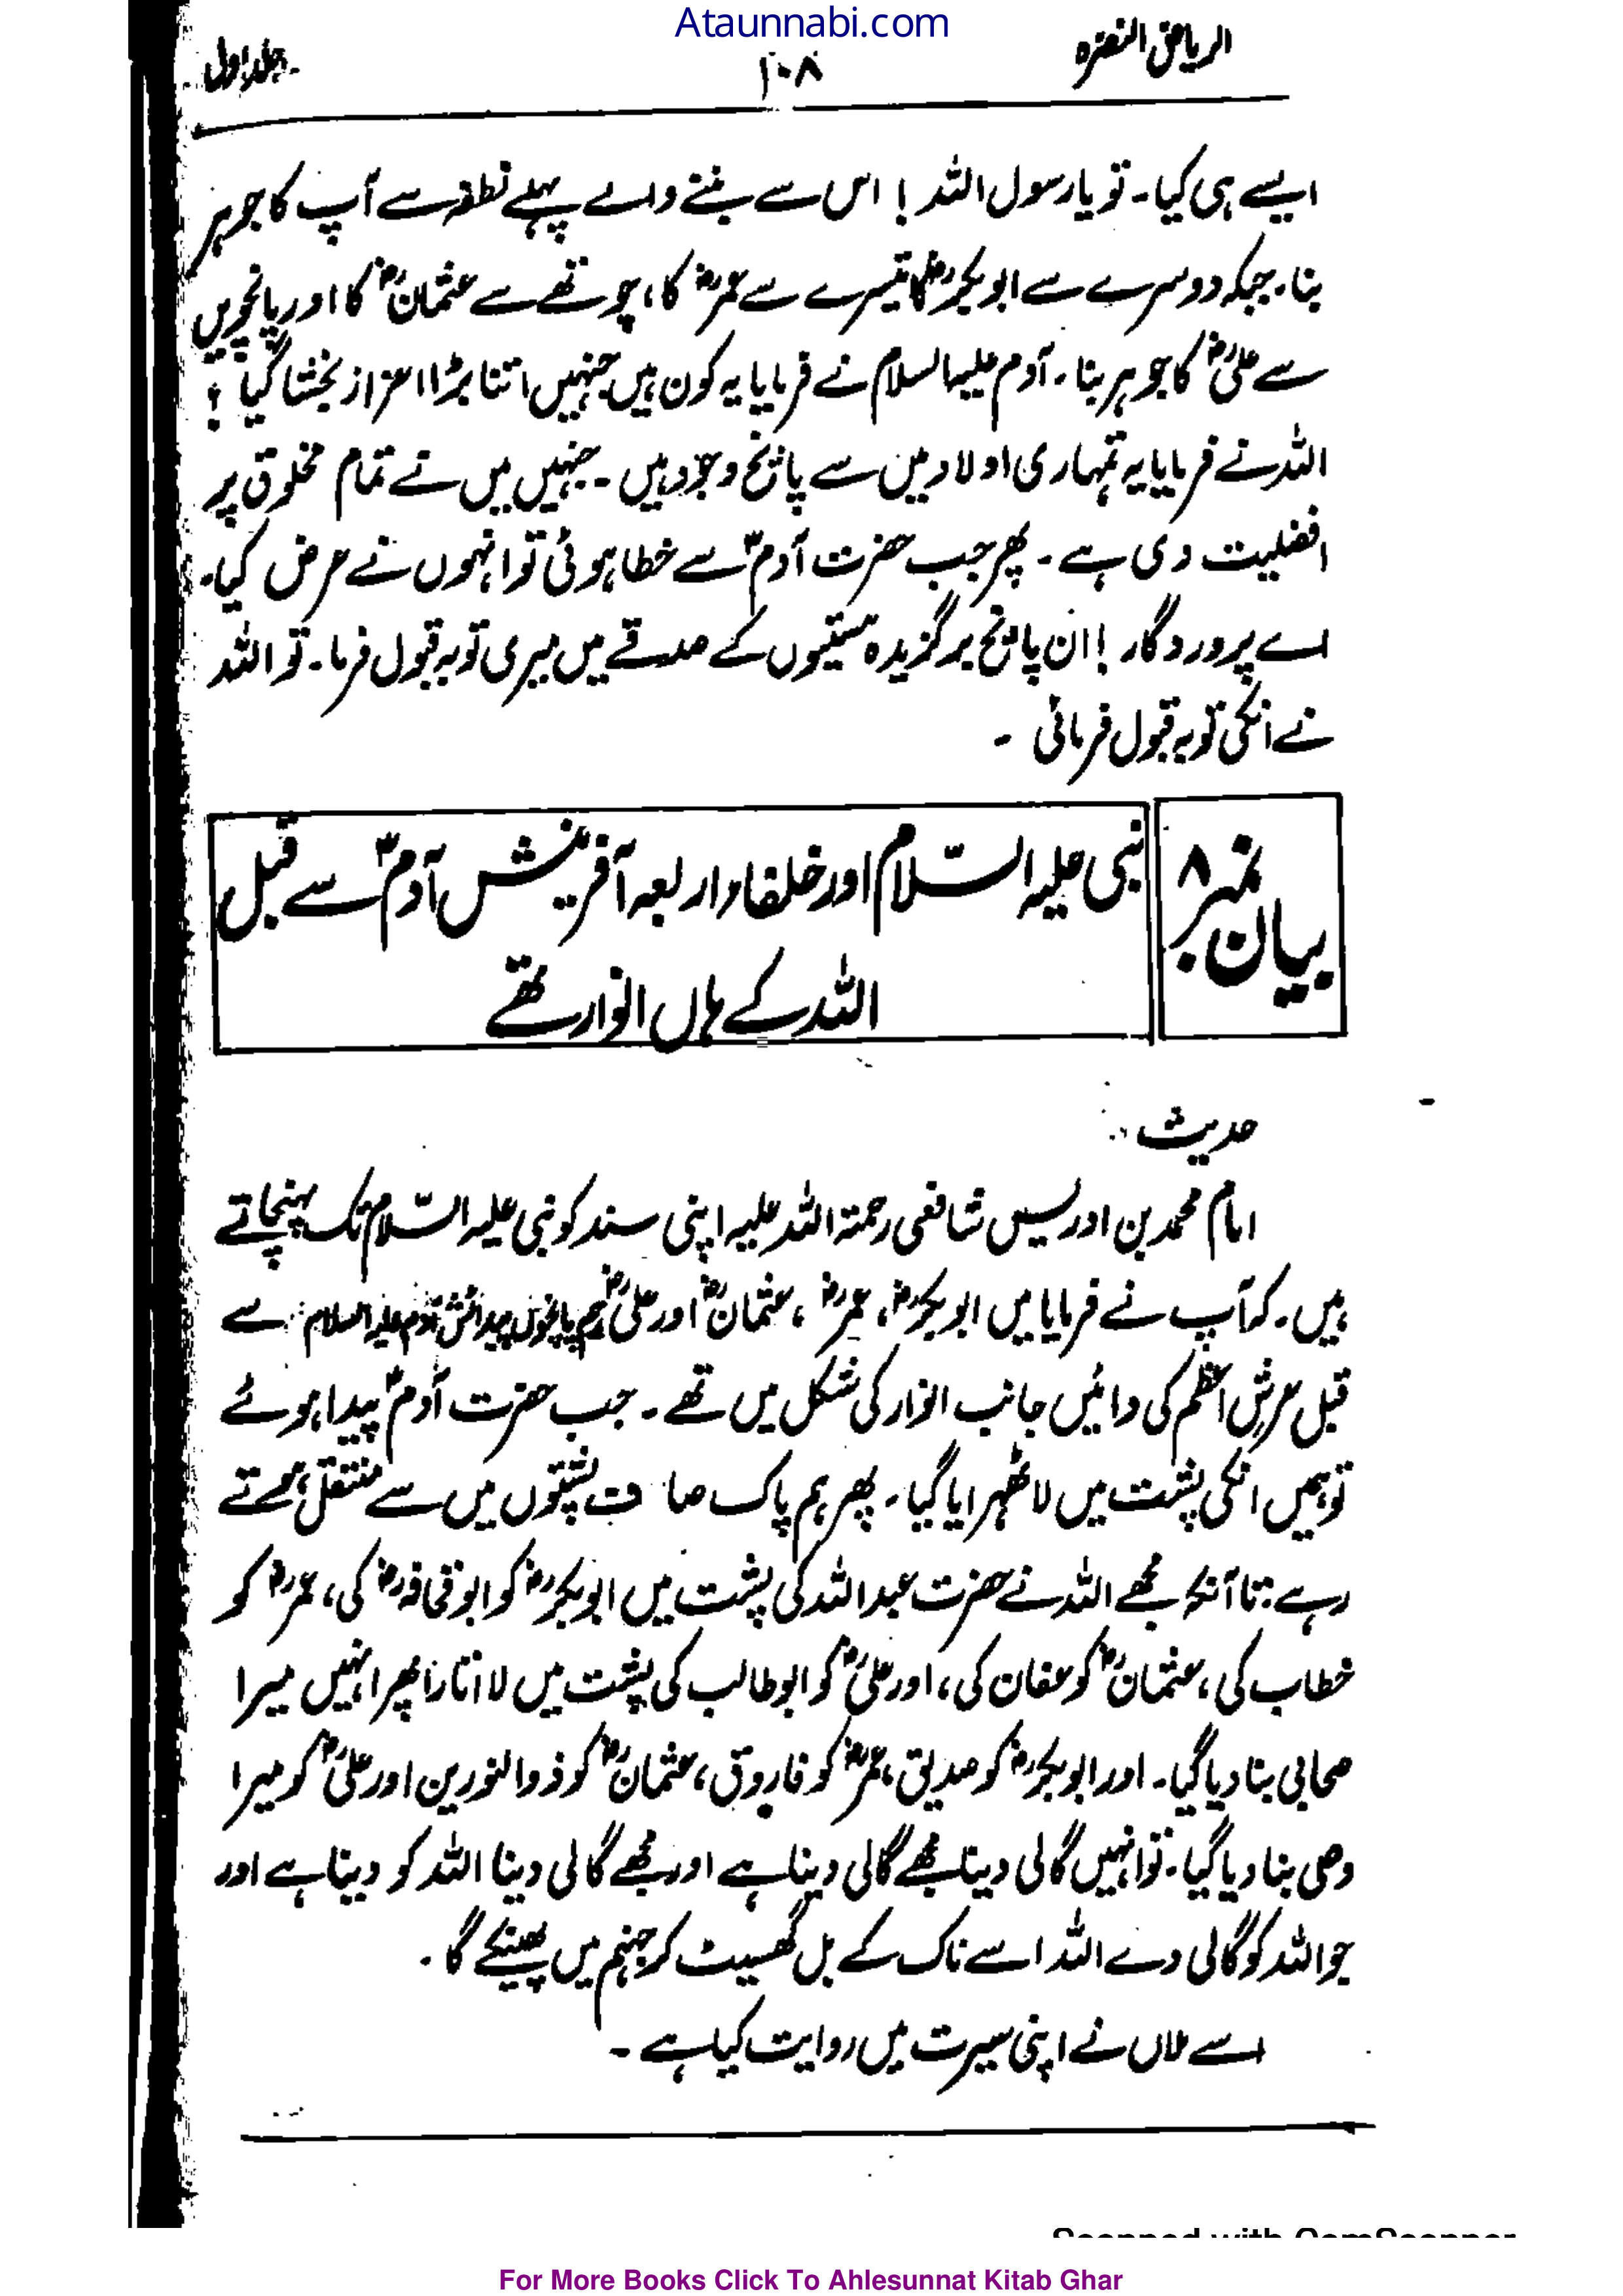 Ataunnabi.com
الریاض النضرہ ۱۰۸ جلد اول
ایسے ہی کیا۔ تو یا رسول اللہ! اس سے بننے والے پہلے نطفہ سے آپ کا جوہر
بنا۔ جبکہ دوسرے سے ابوبکرؓ کا تیسرے سے عمرؓ کا، چوتھے سے عثمانؓ کا اور پانچویں
سے علیؓ کا جوہر بنا۔ آدم علیہ السلام نے فرمایا یہ کون ہیں جنہیں اتنا بڑا اعزاز بخشا گیا؟
اللہ نے فرمایا یہ تمہاری اولاد میں سے پانچ وجود ہیں۔ جنہیں میں نے تمام مخلوق پر
افضلیت دی ہے۔ پھر جب حضرت آدمؑ سے خطا ہوئی تو انہوں نے عرض کیا۔
اے پروردگار! ان پانچ برگزیدہ ہستیوں کے صدقے میں میری توبہ قبول فرما۔ تو اللہ
نے انکی توبہ قبول فرمائی ۔
بیان نمبر ۸
نبی علیہ السّلام اور خلفاء اربعہ آفرینش آدمؑ سے قبل
اللہ کے ہاں انوار تھے
حدیث :
امام محمد بن ادریس شافعی رحمۃ اللہ علیہ اپنی سند کو نبی علیہ السّلام تک پہنچاتے
ہیں۔ کہ آپ نے فرمایا میں ابوبکرؓ، عمرؓ، عثمانؓ اور علیؓ ہم پانچوں پیدائش آدم علیہ السلام سے
قبل عرش اعظم کی دائیں جانب انوار کی شکل میں تھے۔ جب حضرت آدمؑ پیدا ہوئے
تو ہمیں انکی پشت میں لا ٹھہرایا گیا۔ پھر ہم پاک صاف پشتوں میں سے منتقل ہوتے
رہے۔ تا آنکہ مجھے اللہ نے حضرت عبداللہ کی پشت میں ابوبکرؓ کو ابو قحافہؓ کی، عمرؓ کو
خطاب کی، عثمانؓ کو عفان کی، اور علیؓ کو ابوطالب کی پشت میں لا اتارا پھر انہیں میرا
صحابی بنا دیا گیا۔ اور ابوبکرؓ کو صدیق، عمرؓ کو فاروق، عثمانؓ کو ذوالنورین اور علیؓ کو میرا
وصی بنا دیا گیا۔ تو انہیں گالی دینا مجھے گالی دینا ہے اور مجھے گالی دینا اللہ کو دینا ہے اور
جو اللہ کو گالی دے اللہ اسے ناک کے بل گھسیٹ کر جہنم میں پھینکے گا ۔
اسے ملاں نے اپنی سیرت میں روایت کیا ہے ۔
Scanned with CamScanner
For More Books Click To Ahlesunnat Kitab Ghar